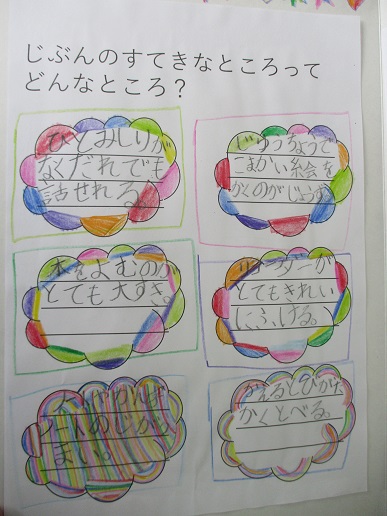 じぶんのすてきなところって
どんなところ？
ひとみしりが
なくだれでも
話せれる。
じゆうちょうで
こまかい絵を
かくのがじょうず
本をよむのが
とても大すき。
リコーダーが
とてもきれい
にふける。
かえるとびがた
かくとべる。